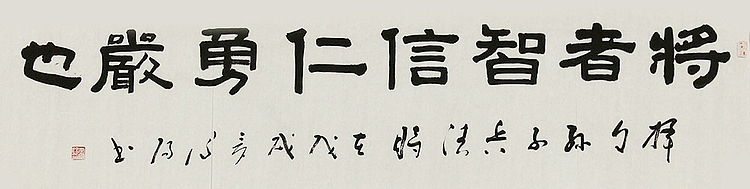 將者智信仁勇嚴也
擇句孫子兵法時在戊戌書